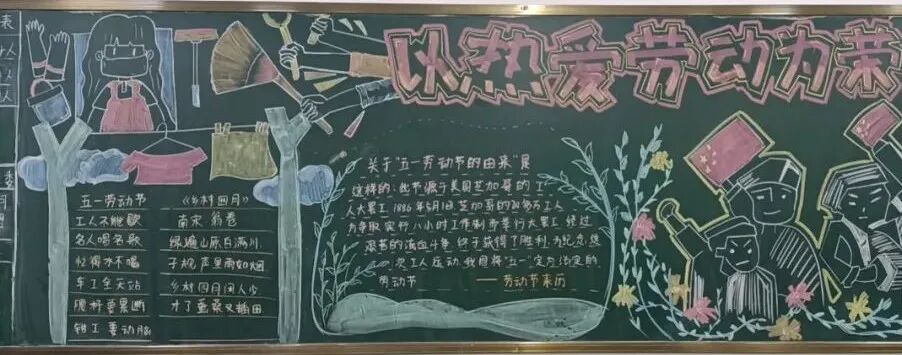 以热爱劳动为荣
五一劳动节
工人不能歇
名人唱名歌
忙得水不喝
车工全天站
腰杆要累断
钳工要动脑
《乡村四月》
南宋 翁卷
绿遍山原白满川
子规声里雨如烟
乡村四月闲人少
才了蚕桑又插田
关于"五一劳动节的由来"是
这样的:此节源于美国芝加哥的工
人大罢工1886年5月1日芝加哥的20多万工人
为争取实行八小时工作制而举行大罢工,经过
艰苦的流血斗争,终于获得了胜利,为纪念这
次工人运动,我国将"五一"定为法定的
劳动节
——劳动节来历